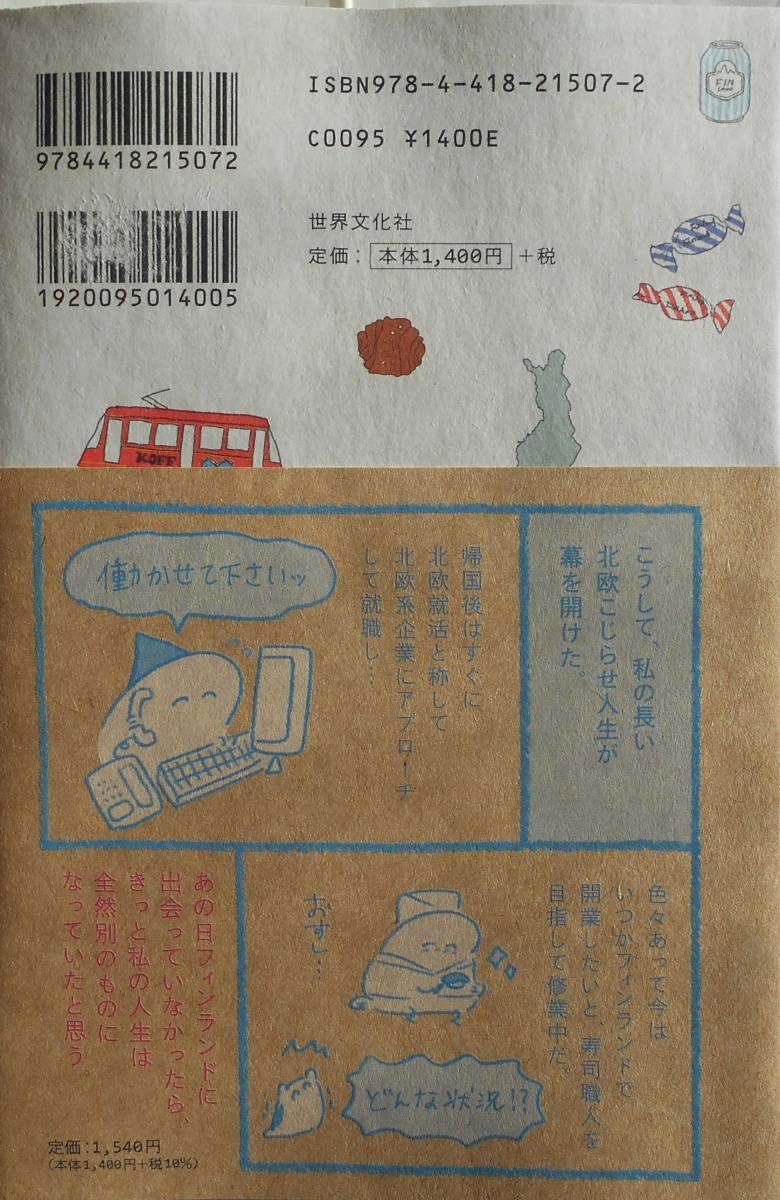 ISBN978-4-418-21507-2
9784418215072
C0095 ¥1400E
1920095014005
世界文化社
定価：本体1,400円＋税
FIN
KOFF
こうして、私の長い
北欧こじらせ人生が
幕を開けた。
帰国後はすぐに
北欧就活と称して
北欧系企業にアプローチ
して就職し…
働かせて下さいッ
色々あって今は
いつかフィンランドで
開業したいと、寿司職人を
目指して修業中だ。
おすし…
どんな状況!?
あの日フィンランドに
出会っていなかったら、
きっと私の人生は
全然別のものに
なっていたと思う。
定価：1,540円
（本体1,400円＋税10%）